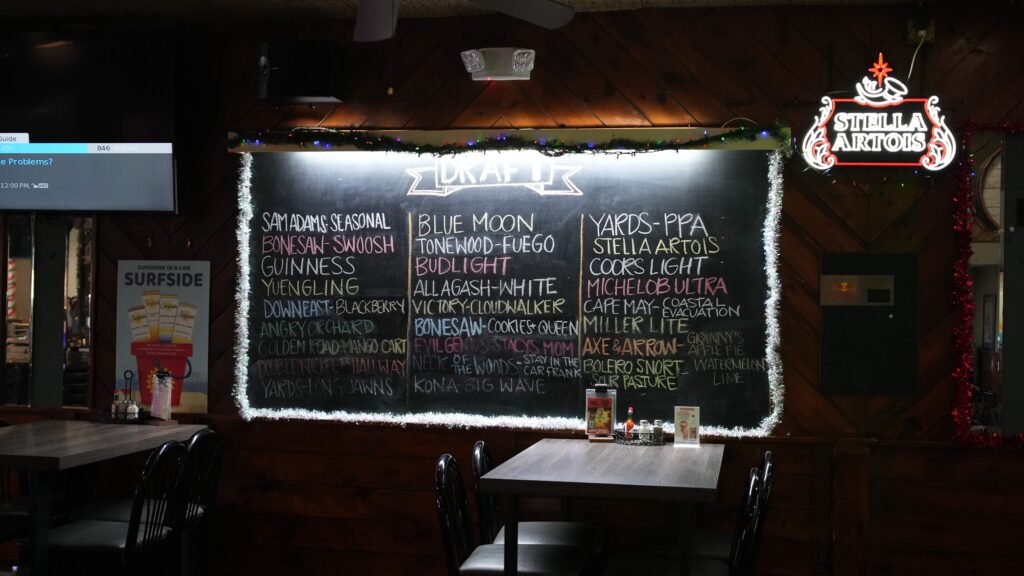 Guide
846
e Problems?
12:00 PM,
DRAFT
SAM ADAMS SEASONAL
BONESAW-SWOOSH
GUINNESS
YUENGLING
DOWNEAST-BLACKBERRY
ANGRY ORCHARD
GOLDEN ROAD-MANGO CART
YARDS-LONG JAWNS
BLUE MOON
TONEWOOD-FUEGO
BUDLIGHT
ALLAGASH-WHITE
VICTORY-CLOUDWALKER
BONESAW-COOKIES+QUEEN
EVIL GENIUS STACYS MOM
NECK OF THE WOODS-STAY IN THE CAR FRANK
KONA BIG WAVE
YARDS-PPA
STELLA ARTOIS
COORS LIGHT
MICHELOB ULTRA
CAPE MAY-COASTAL EVACUATION
MILLER LITE
AXE & ARROW-GRANNY'S APPLE PIE
BOLERO SNORT
PASTURE
WATERMELON LIME
STELLA
ARTOIS
SUNSHINE IN A CAN
SURFSIDE